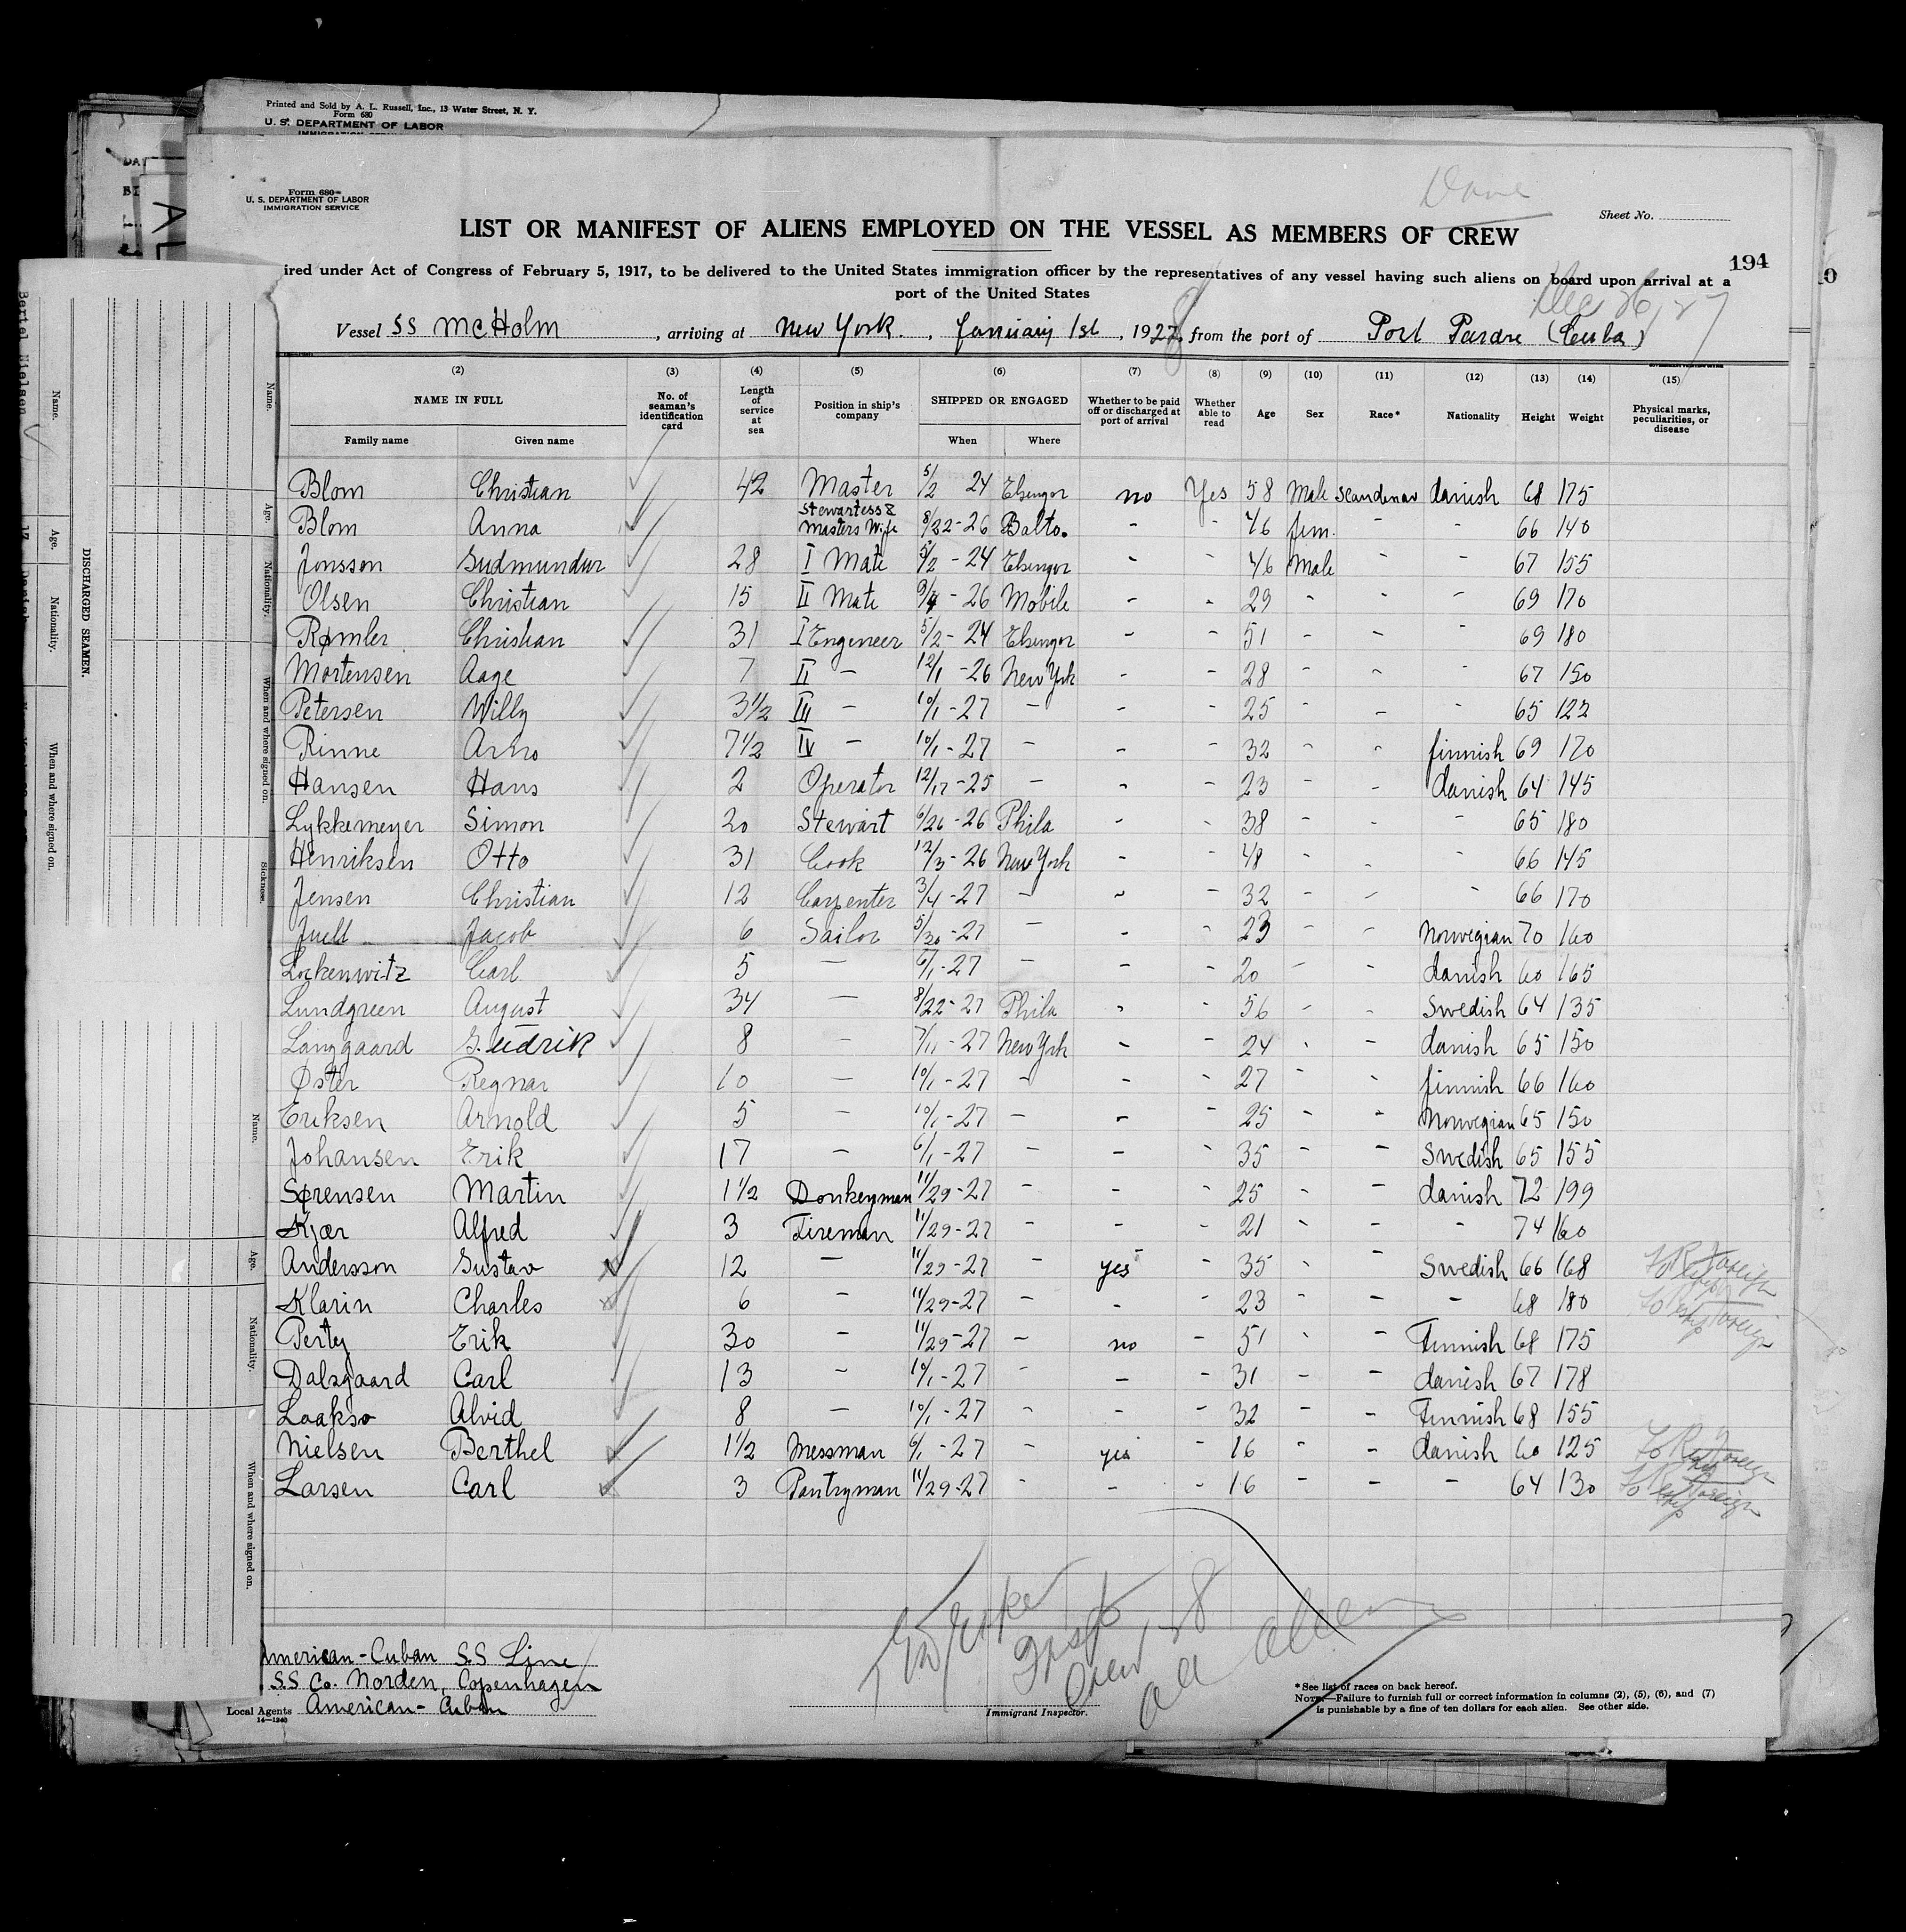 Printed and Sold by A. L. Russell, Inc., 13 Water Street, N. Y.
Form 680
U. S. DEPARTMENT OF LABOR
Form 680
U. S. DEPARTMENT OF LABOR
IMMIGRATION SERVICE
Sheet No.
LIST OR MANIFEST OF ALIENS EMPLOYED ON THE VESSEL AS MEMBERS OF CREW
194
ired under Act of Congress of February 5, 1917, to be delivered to the United States immigration officer by the representatives of any vessel having such aliens on board upon arrival at a
port of the United States
Dec 26, 27
Vessel SS McHolm, arriving at New York., January 1st, 1928, from the port of Port Pardre (Cuba)
(2) (3) (4) (5) (6) (7) (8) (9) (10) (11) (12) (13) (14) (15)
NAME IN FULL No. of seaman's identification card Length of service at sea Position in ship's company SHIPPED OR ENGAGED Whether to be paid off or discharged at port of arrival Whether able to read Age Sex Race* Nationality Height Weight Physical marks, peculiarities, or disease
Family name Given name When Where
Blom Christian 42 Master 5/2 24 Elsengor no Yes 58 Male Scandenav danish 68 175
Blom Anna Stewartess & Masters Wife 8/22-26 Balto. - - 46 fem. - - 66 140
Jonsson Gudmundur 28 I Mate 5/2-24 Elsengor - - 46 Male - - 67 155
Olsen Christian 15 II Mate 9/4-26 Mobile - - 29 - - - 69 170
Rømler Christian 31 I Engeneer 5/2-24 Elsengor - - 51 - - - 69 180
Mortensen Aage 7 II - 12/1-26 New York - - 28 - - - 67 150
Petersen Willy 3 1/2 III - 10/1-27 - - - 25 - - - 65 122
Rinne Arno 7 1/2 IV - 10/1-27 - - - 32 - - finnish 69 170
Hansen Hans 2 Operator 12/17-25 - - - 23 - - danish 64 145
Lykkemeyer Simon 20 Stewart 6/26-26 Phila - - 38 - - - 65 180
Henriksen Otto 31 Cook 12/3-26 New York - - 48 - - - 66 145
Jensen Christian 12 Carpenter 3/4-27 - - - 32 - - - 66 170
Juell Jacob 6 Sailor 5/30-27 - - - 23 - - Norwegian 70 160
Lockenwitz Carl 5 - 6/1-27 - - - 20 - - danish 60 165
Lundgreen August 34 - 8/22-27 Phila - - 56 - - Swedish 64 135
Langgaard G. Fudrik 8 - 7/11-27 New York - - 24 - - danish 65 150
Øster Regnar 10 - 10/1-27 - - - 27 - - finnish 66 160
Eriksen Arnold 5 - 10/1-27 - - - 25 - - Norwegian 65 150
Johansen Erik 17 - 6/1-27 - - - 35 - - Swedish 65 155
Sørensen Martin 1 1/2 Donkeyman 11/29-27 - - - 25 - - danish 72 199
Kjær Alfred 3 Fireman 11/29-27 - - - 21 - - - 74 160
Andersson Gustav 12 - 11/29-27 - yes - 35 - - Swedish 66 168 To Reship Foreign
Klarin Charles 6 - 11/29-27 - - - 23 - - - 68 180 To Reship Foreign
Perty Erik 30 - 11/29-27 - no - 51 - - Finnish 68 175
Dalsgaard Carl 13 - 10/1-27 - - - 31 - - danish 67 178
Laakso Alvid 8 - 10/1-27 - - - 32 - - Finnish 68 155
Nielsen Berthel 1 1/2 Messman 6/1-27 - yes - 16 - - danish 60 125 To Reship Foreign
Larsen Carl 3 Pantryman 11/29-27 - - - 16 - - - 64 130 To Reship Foreign
Insp
Crew 28
all alien
American-Cuban S.S Line
S.S Co. Norden, Copenhagen
Local Agents American-Cuban
14-1240
Immigrant Inspector.
*See list of races on back hereof.
NOTE.—Failure to furnish full or correct information in columns (2), (5), (6), and (7)
is punishable by a fine of ten dollars for each alien. See other side.
DISCHARGED SEAMEN.
Name. Age. Nationality. When and where signed on.
Bertel Nielsen
Name. Age. Nationality. When and where signed on. Sickness.
Name. Age. Nationality. When and where signed on.